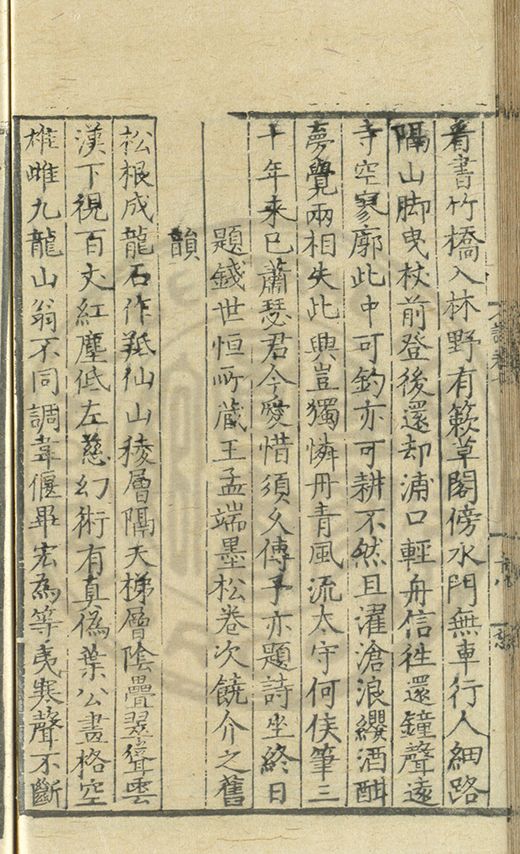 看書竹橋入林野有簌草閣傍水門無車行人細路
隔山脚曳杖前登後還却浦口輕舟信徃還鐘聲遠
寺空寥廓此中可釣亦可耕不然且濯滄浪纓酒酣
夢覺兩相失此興豈獨憐丹青風流太守何侯筆三
十年來已蕭瑟君今愛惜須久傳予亦題詩坐終日
題錢世恒所蔵王孟端墨松卷次饒介之舊
韻
松根成龍石作羝仙山稜層隔天梯層陰疊翠聳雲
漢下視百丈紅塵低左慈幻術有真偽葉公畫格空
雌九龍山翁不同調韋偃畢宏為等夷寒聲不斷